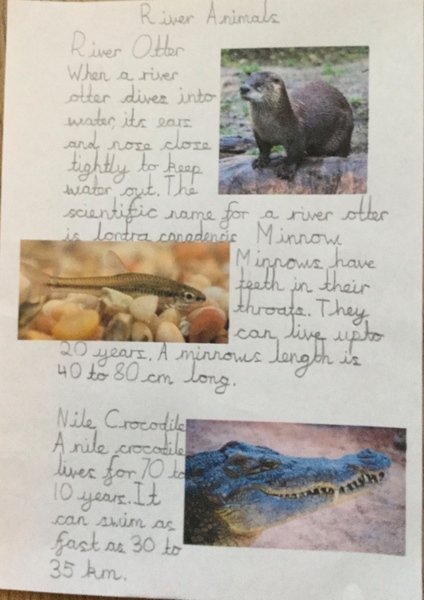 River Animals
River Otter
When a river
otter dives into
water, its ears
and nose close
tightly to keep
water out. The
scientific name for a river otter
is lontra canadencis Minnow
Minnows have
teeth in their
throats. They
can live upto
20 years. A minnows length is
40 to 80 cm long.
Nile Crocodile
A nile crocodile
lives for 70 to
10 years. It
can swim as
fast as 30 to
35 km.